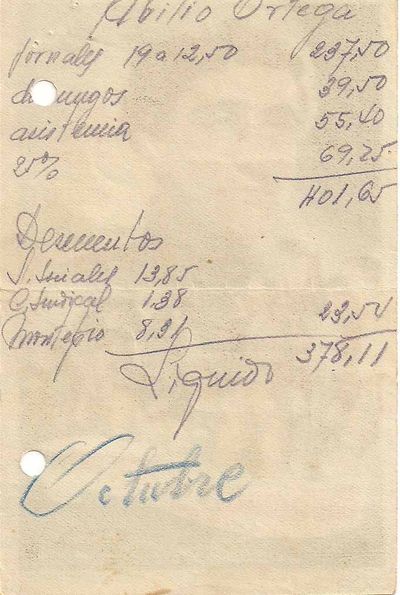 Abilio Ortega
Jornales 19 a 12,50 237,50
domingos 39,50
asistencia 55,40
25% 69,25
401,65
Descuentos
S. Sociales 13,85
C. Sindical 1,38
Montepio 8,31 23,54
Liquido 378,11
Octubre